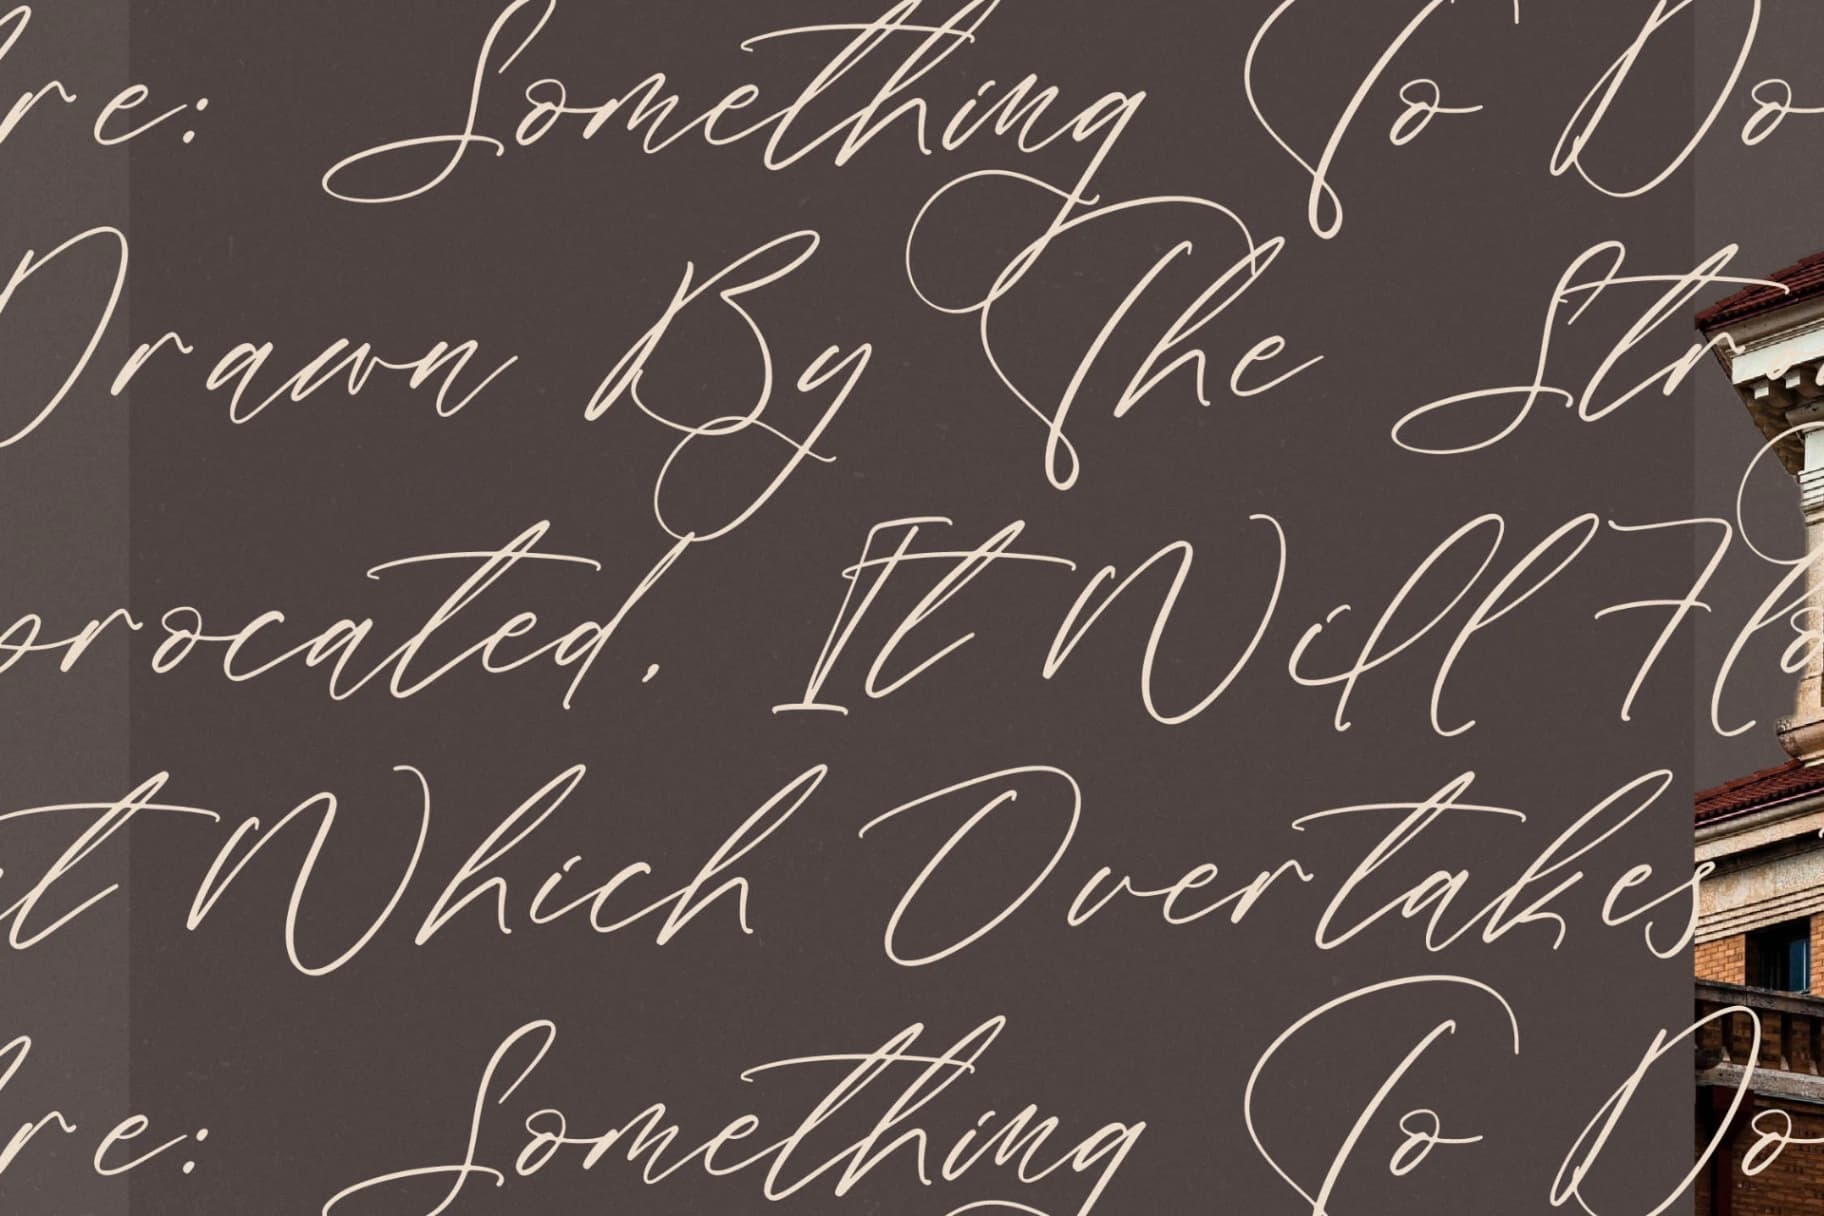 re: Something To Do
Drawn By The Str
procated. It Will Flo
t Which Overtakes
re: Something To Do